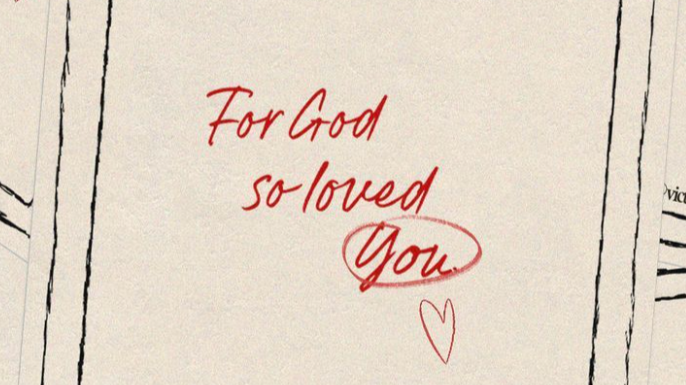 For God
so loved
You.